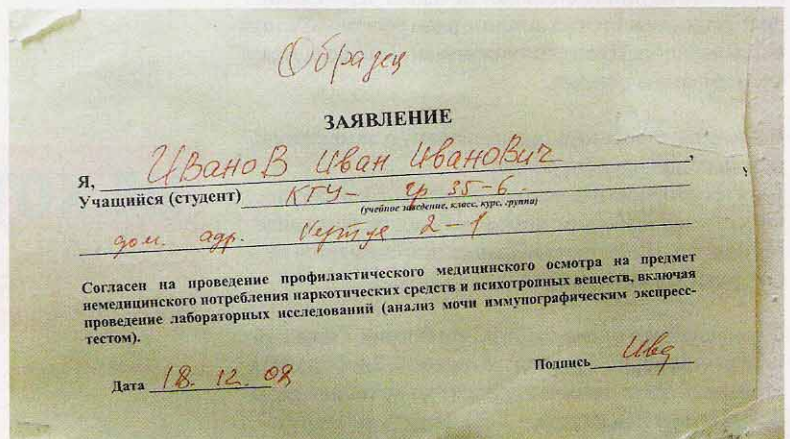 Образец
ЗАЯВЛЕНИЕ
Я, Иванов Иван Иванович,
Учащийся (студент) КГУ- гр 35-6.
(учебное заведение, класс, курс, группа)
дом. адр. 2-1
Согласен на проведение профилактического медицинского осмотра на предмет
немедицинского потребления наркотических средств и психотропных веществ, включая
проведение лабораторных исследований (анализ мочи иммунографическим экспресс-
тестом).
Дата 18. 12. 08 Подпись Ива